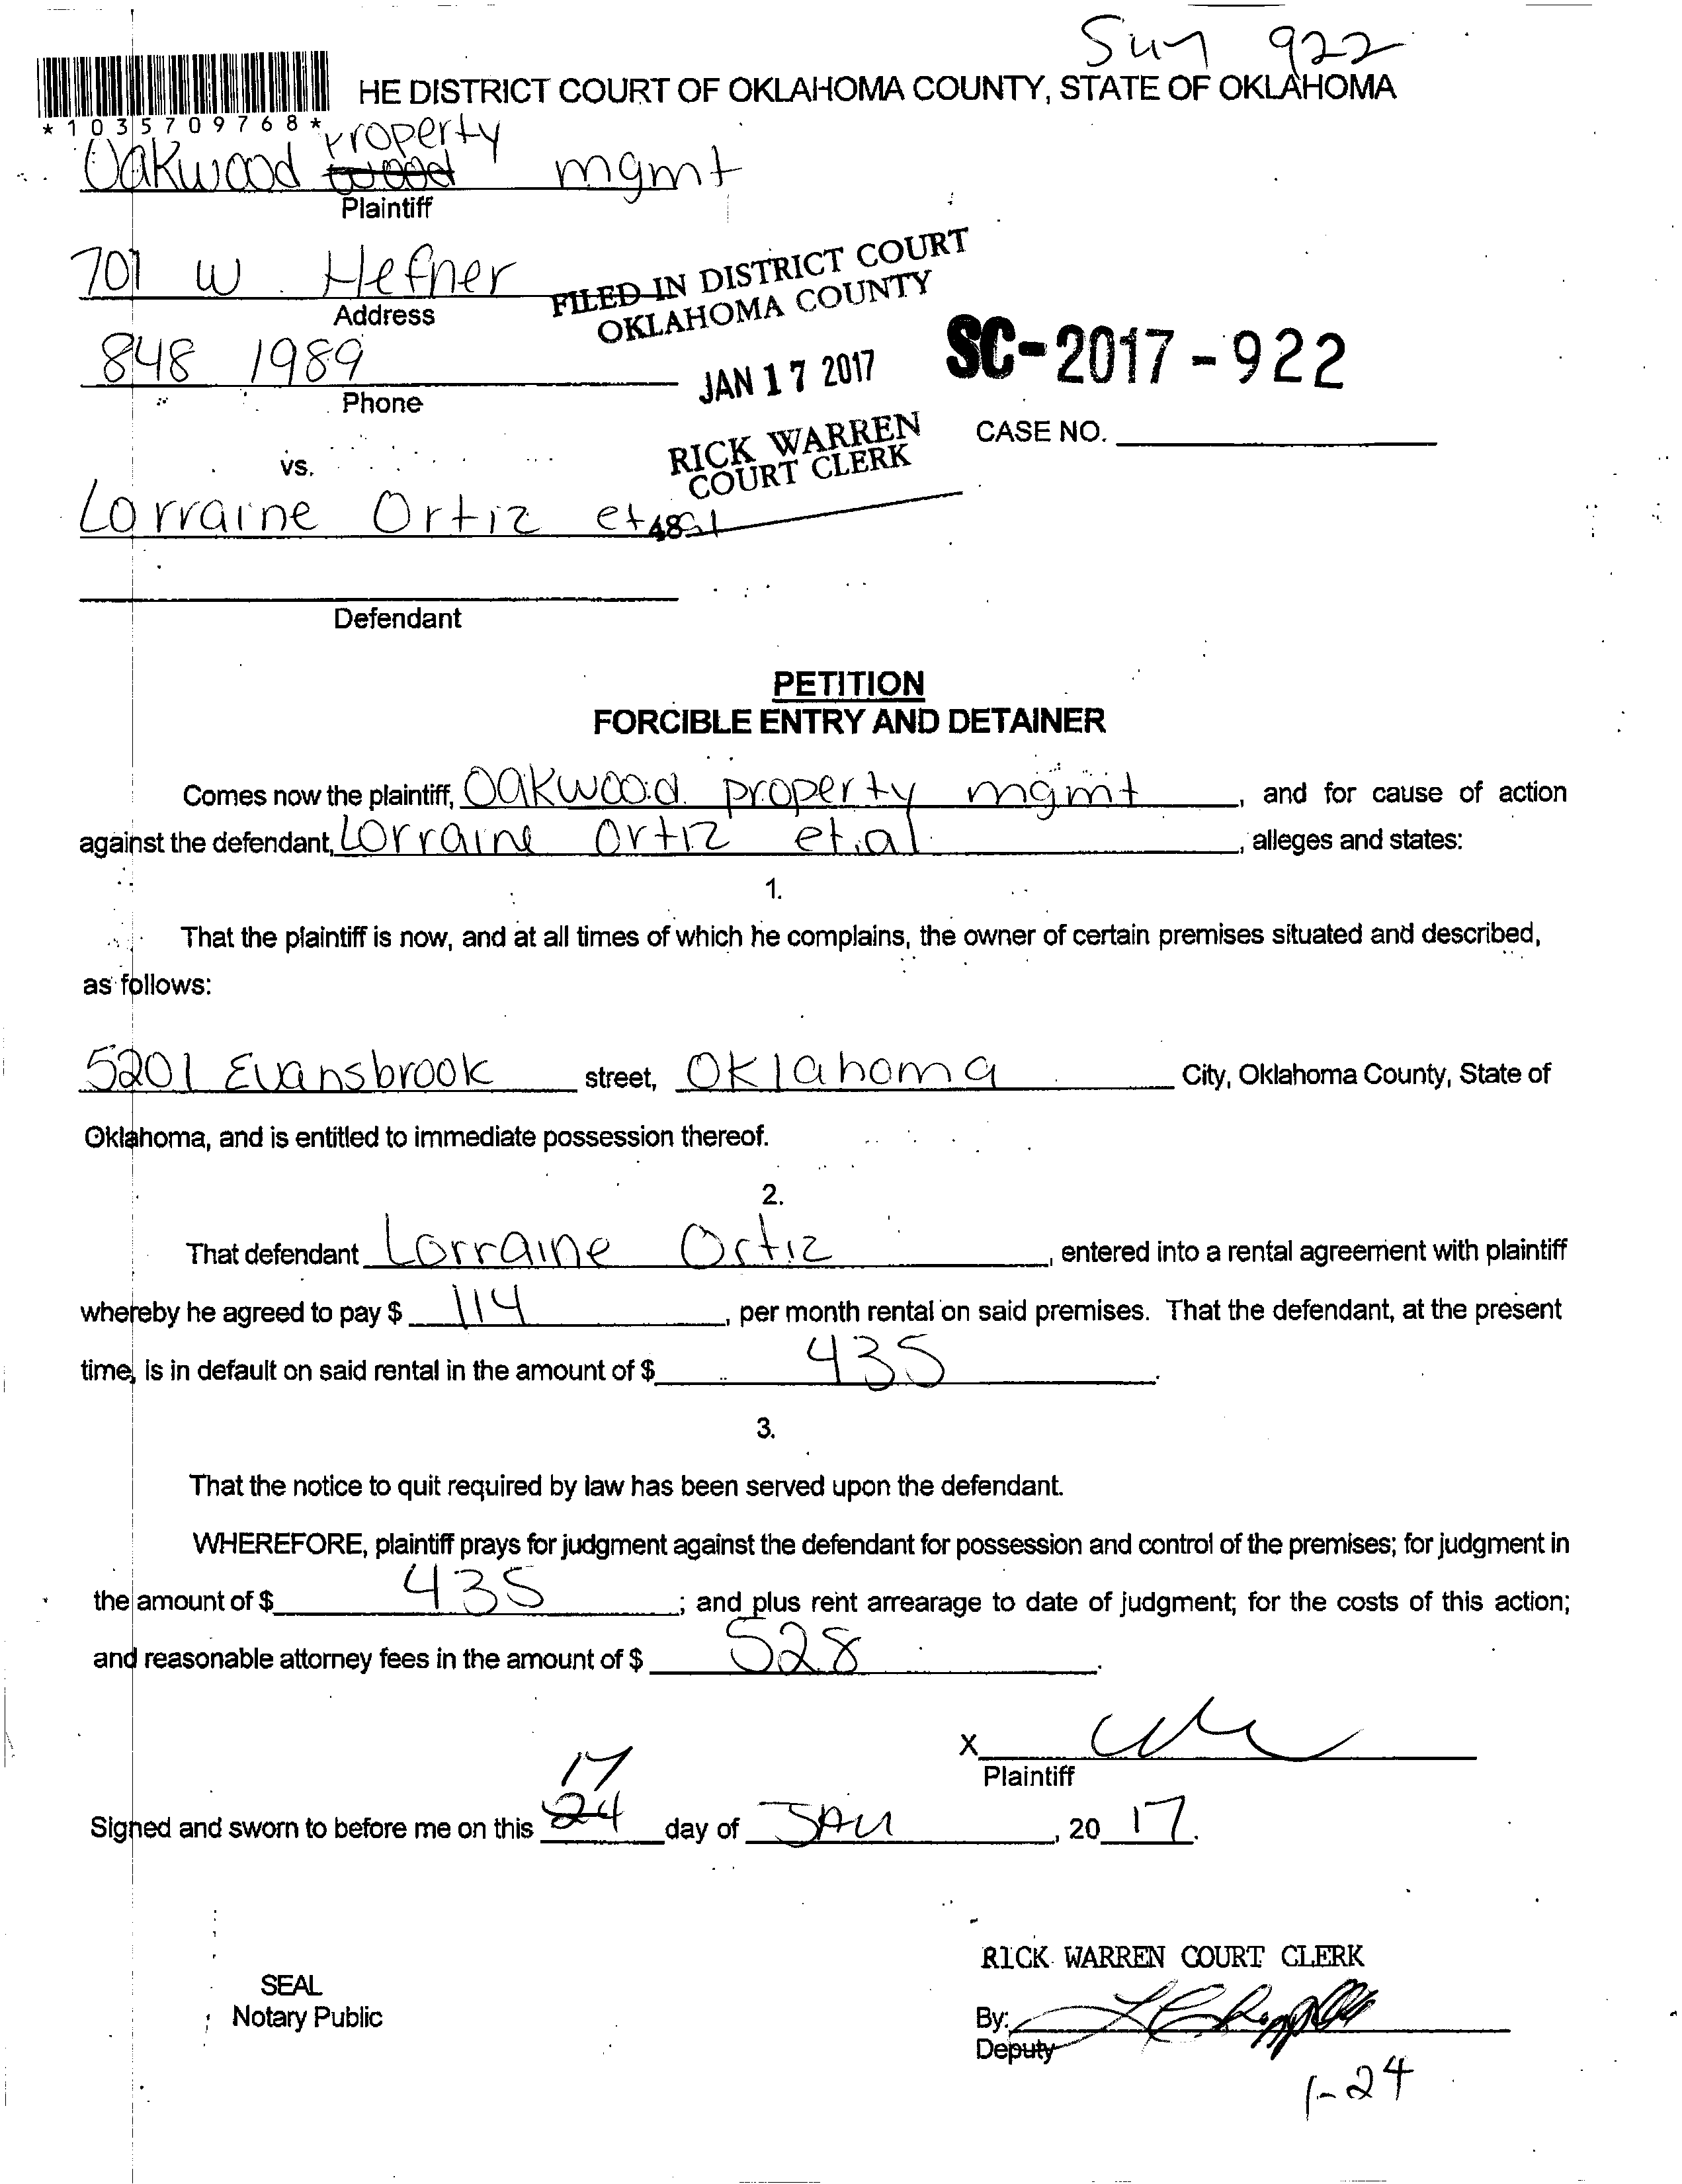 922
HE DISTRICT COURT OF OKLAHOMA COUNTY, STATE OF OKLAHOMA
*1035709768*
Property
Oakwood mgmt
Plaintiff
701 W. Hefner
Address
FILED IN DISTRICT COURT
OKLAHOMA COUNTY
848 1989
Phone
JAN 17 2017
SC-2017-922
RICK WARREN
COURT CLERK
CASE NO.
vs.
Lorraine Ortiz et al
48
Defendant
PETITION
FORCIBLE ENTRY AND DETAINER
Comes now the plaintiff, Oakwood property mgmt, and for cause of action
against the defendant, Lorraine Ortiz et.al, alleges and states:
1.
That the plaintiff is now, and at all times of which he complains, the owner of certain premises situated and described,
as follows:
5201 Evansbrook street, Oklahoma City, Oklahoma County, State of
Oklahoma, and is entitled to immediate possession thereof.
2.
That defendant Lorraine Ortiz, entered into a rental agreement with plaintiff
whereby he agreed to pay $ 114, per month rental on said premises. That the defendant, at the present
time, is in default on said rental in the amount of $ 435.
3.
That the notice to quit required by law has been served upon the defendant.
WHEREFORE, plaintiff prays for judgment against the defendant for possession and control of the premises; for judgment in
the amount of $ 435; and plus rent arrearage to date of judgment; for the costs of this action;
and reasonable attorney fees in the amount of $ 528.
X
Plaintiff
17
Signed and sworn to before me on this 24 day of JAN, 20 17.
RICK WARREN COURT CLERK
SEAL
Notary Public
By:
Deputy
1-24